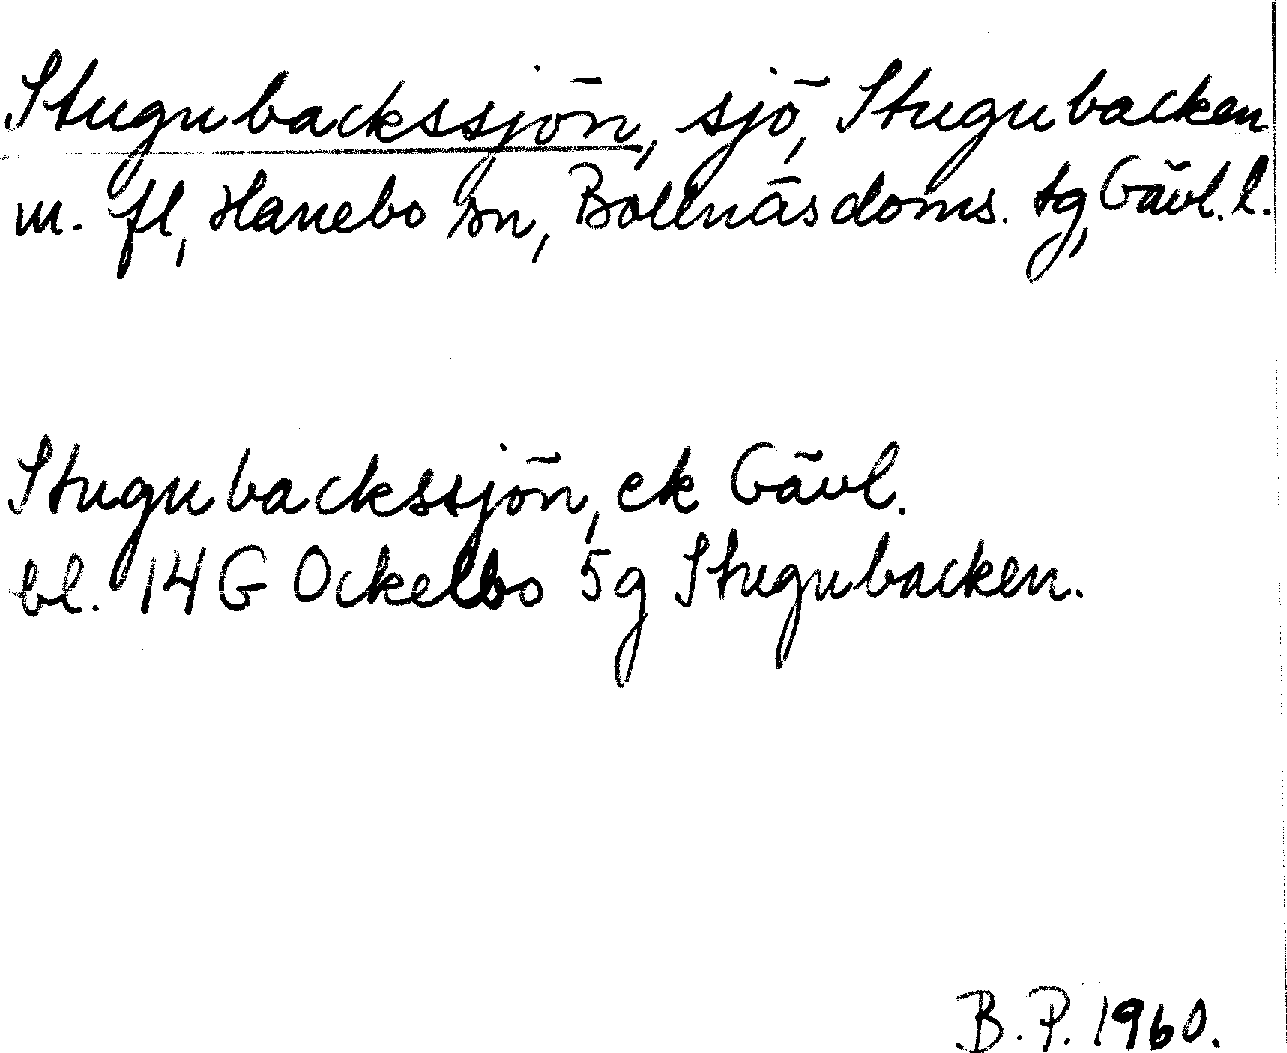 Stugubackssjön, sjö, Stugubacken
m. fl, Hanebo sn, Bollnäs doms. tg, Gävl. l.
Stugubackssjön, ek Gävl.
bl. 14 G Ockelbo 5g Stugubacken.
B. P. 1960.